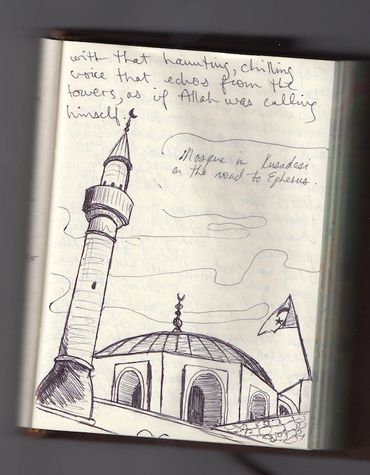 with that haunting, chilling
voice that echos from the
towers, as if Allah was calling
himself.
Mosque in Kusadasi
on the road to Ephesus.